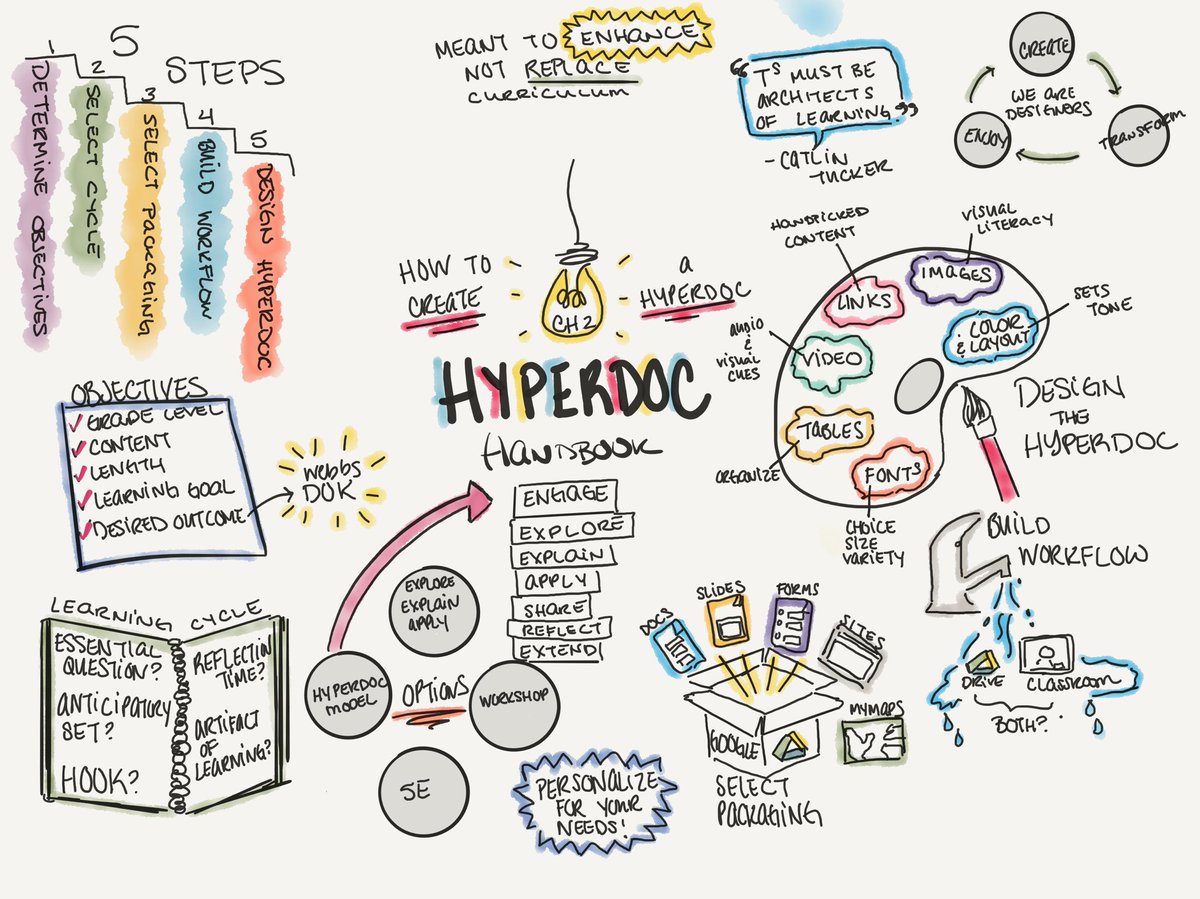 5
STEPS
1
DETERMINE OBJECTIVES
2
SELECT CYCLE
3
SELECT PACKAGING
4
BUILD WORKFLOW
5
DESIGN HYPERDOC
MEANT TO ENHANCE
NOT REPLACE
CURRICULUM
"TS MUST BE
ARCHITECTS
OF LEARNING."
-CATLIN
TUCKER
CREATE
WE ARE
DESIGNERS
ENJOY
TRANSFORM
HOW TO
CREATE
CH2
A
HYPERDOC
HYPERDOC
HANDBOOK
HANDPICKED
CONTENT
VISUAL
LITERACY
LINKS
IMAGES
COLOR
& LAYOUT
SETS
TONE
AUDIO
&
VISUAL
CUES
VIDEO
TABLES
ORGANIZE
FONTS
CHOICE
SIZE
VARIETY
DESIGN
THE
HYPERDOC
OBJECTIVES
GRADE LEVEL
CONTENT
LENGTH
LEARNING GOAL
DESIRED OUTCOME
WEBBS
DOK
LEARNING CYCLE
ESSENTIAL
QUESTION?
ANTICIPATORY
SET?
HOOK?
REFLECTION
TIME?
ARTIFACT
OF
LEARNING?
ENGAGE
EXPLORE
EXPLAIN
APPLY
SHARE
REFLECT
EXTEND
EXPLORE
EXPLAIN
APPLY
HYPERDOC
MODEL
OPTIONS
WORKSHOP
5E
PERSONALIZE
FOR YOUR
NEEDS!
DOCS
SLIDES
FORMS
SITES
MYMAPS
GOOGLE
SELECT
PACKAGING
BUILD
WORKFLOW
DRIVE
CLASSROOM
BOTH?